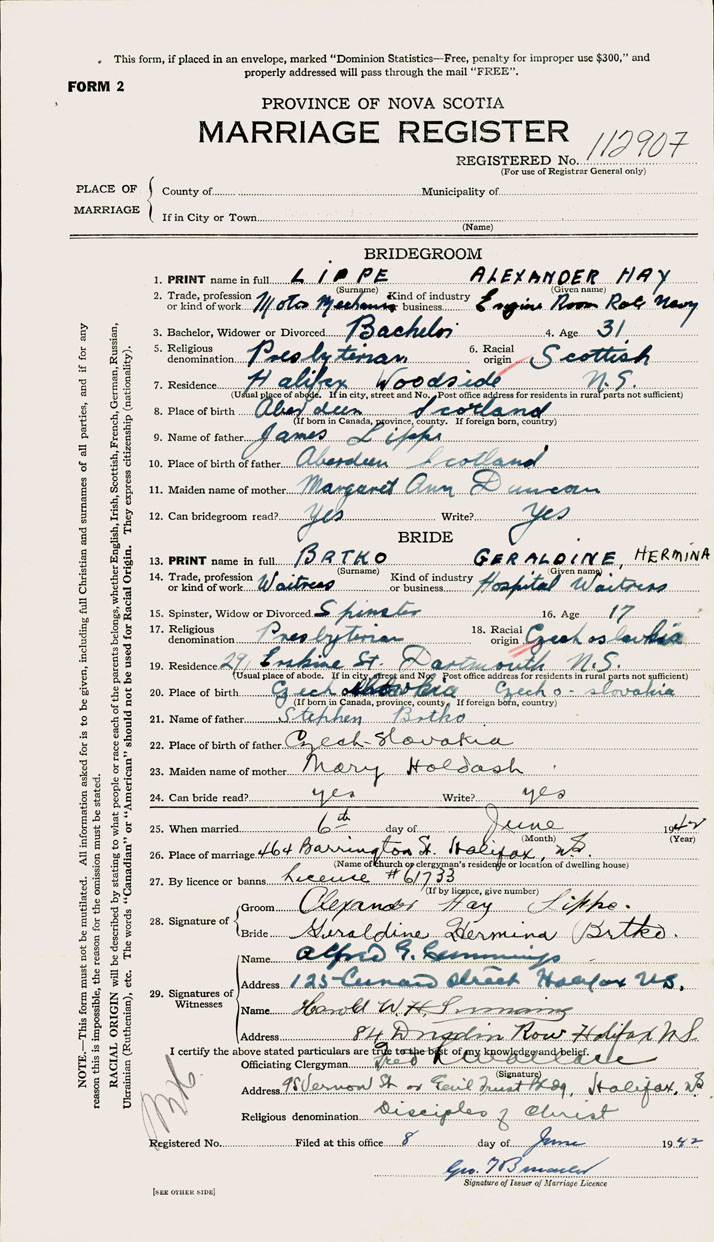 This form, if placed in an envelope, marked "Dominion Statistics—Free, penalty for improper use $300," and
properly addressed will pass through the mail "FREE".
FORM 2
PROVINCE OF NOVA SCOTIA
MARRIAGE REGISTER
REGISTERED No. 112907
(For use of Registrar General only)
PLACE OF MARRIAGE
County of Municipality of
If in City or Town
(Name)
BRIDEGROOM
1. PRINT name in full LIPPE ALEXANDER HAY
(Surname) (Given name)
2. Trade, profession or kind of work Motor Mechanic Kind of industry or business Engine Room Navy
3. Bachelor, Widower or Divorced Bachelor 4. Age 31
5. Religious denomination Presbyterian 6. Racial origin Scottish
7. Residence Halifax Woodside N.S.
(Usual place of abode. If in city, street and No. Post office address for residents in rural parts not sufficient)
8. Place of birth Aberdeen Scotland
(If born in Canada, province, county. If foreign born, country)
9. Name of father James Lippe
10. Place of birth of father Aberdeen Scotland
11. Maiden name of mother Margaret Ann Duncan
12. Can bridegroom read? Yes Write? Yes
BRIDE
13. PRINT name in full BRTKO GERALDINE, HERMINA
(Surname) (Given name)
14. Trade, profession or kind of work Waitress Kind of industry or business Hospital Waitress
15. Spinster, Widow or Divorced Spinster 16. Age 17
17. Religious denomination Presbyterian 18. Racial origin Czechoslovakia
19. Residence 29, Erskine St. Dartmouth N.S.
(Usual place of abode. If in city, street and No. Post office address for residents in rural parts not sufficient)
20. Place of birth Czecho-slovakia
(If born in Canada, province, county. If foreign born, country)
21. Name of father Stephen Brtko
22. Place of birth of father Czech-Slovakia
23. Maiden name of mother Mary Holdash
24. Can bride read? yes Write? yes
25. When married 6th day of June 1942
(Month) (Year)
26. Place of marriage 464 Barrington St. Halifax, N.S.
(Name of church or clergyman's residence or location of dwelling house)
27. By licence or banns License #61733
(If by licence, give number)
28. Signature of
Groom Alexander Hay Lippe.
Bride Geraldine Hermina Brtko.
29. Signatures of Witnesses
Name Alfred G. Cummings
Address 125-Cunard Street Halifax N.S.
Name Harold W.H.
Address 84 Row Halifax N.S.
I certify the above stated particulars are true to the best of my knowledge and belief.
Officiating Clergyman Fred
(Signature)
Address 95 Vernon St or Trust Bldg, Halifax, N.S.
Religious denomination Disciples of Christ
Registered No. Filed at this office 8 day of June 1942
Geo.
Signature of Issuer of Marriage Licence
[SEE OTHER SIDE]
NOTE.—This form must not be mutilated. All information asked for is to be given, including full Christian and surnames of all parties, and if for any
reason this is impossible, the reason for the omission must be stated.
RACIAL ORIGIN will be described by stating to what people or race each of the parents belongs, whether English, Irish, Scottish, French, German, Russian,
Ukrainian (Ruthenian), etc. The words "Canadian" or "American" should not be used for Racial Origin. They express citizenship (nationality).